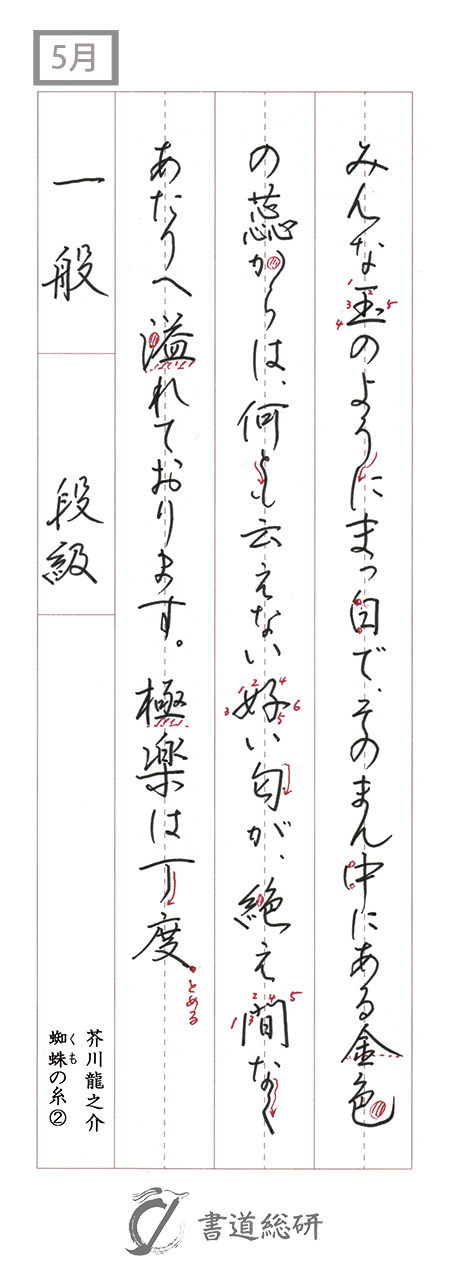 5月
みんな玉のようにまっ白で、そのまん中にある金色
の蕊からは、何とも云えない好い匂が、絶え間なく
あたりへ溢れております。極楽は丁度
とめる
一般
段級
芥川龍之介
蜘蛛の糸②
くも
書道総研